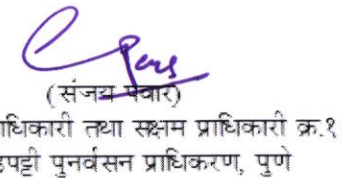 (संजय पवार)
धिकारी तथा सक्षम प्राधिकारी क्र.१
डपट्टी पुनर्वसन प्राधिकरण, पुणे